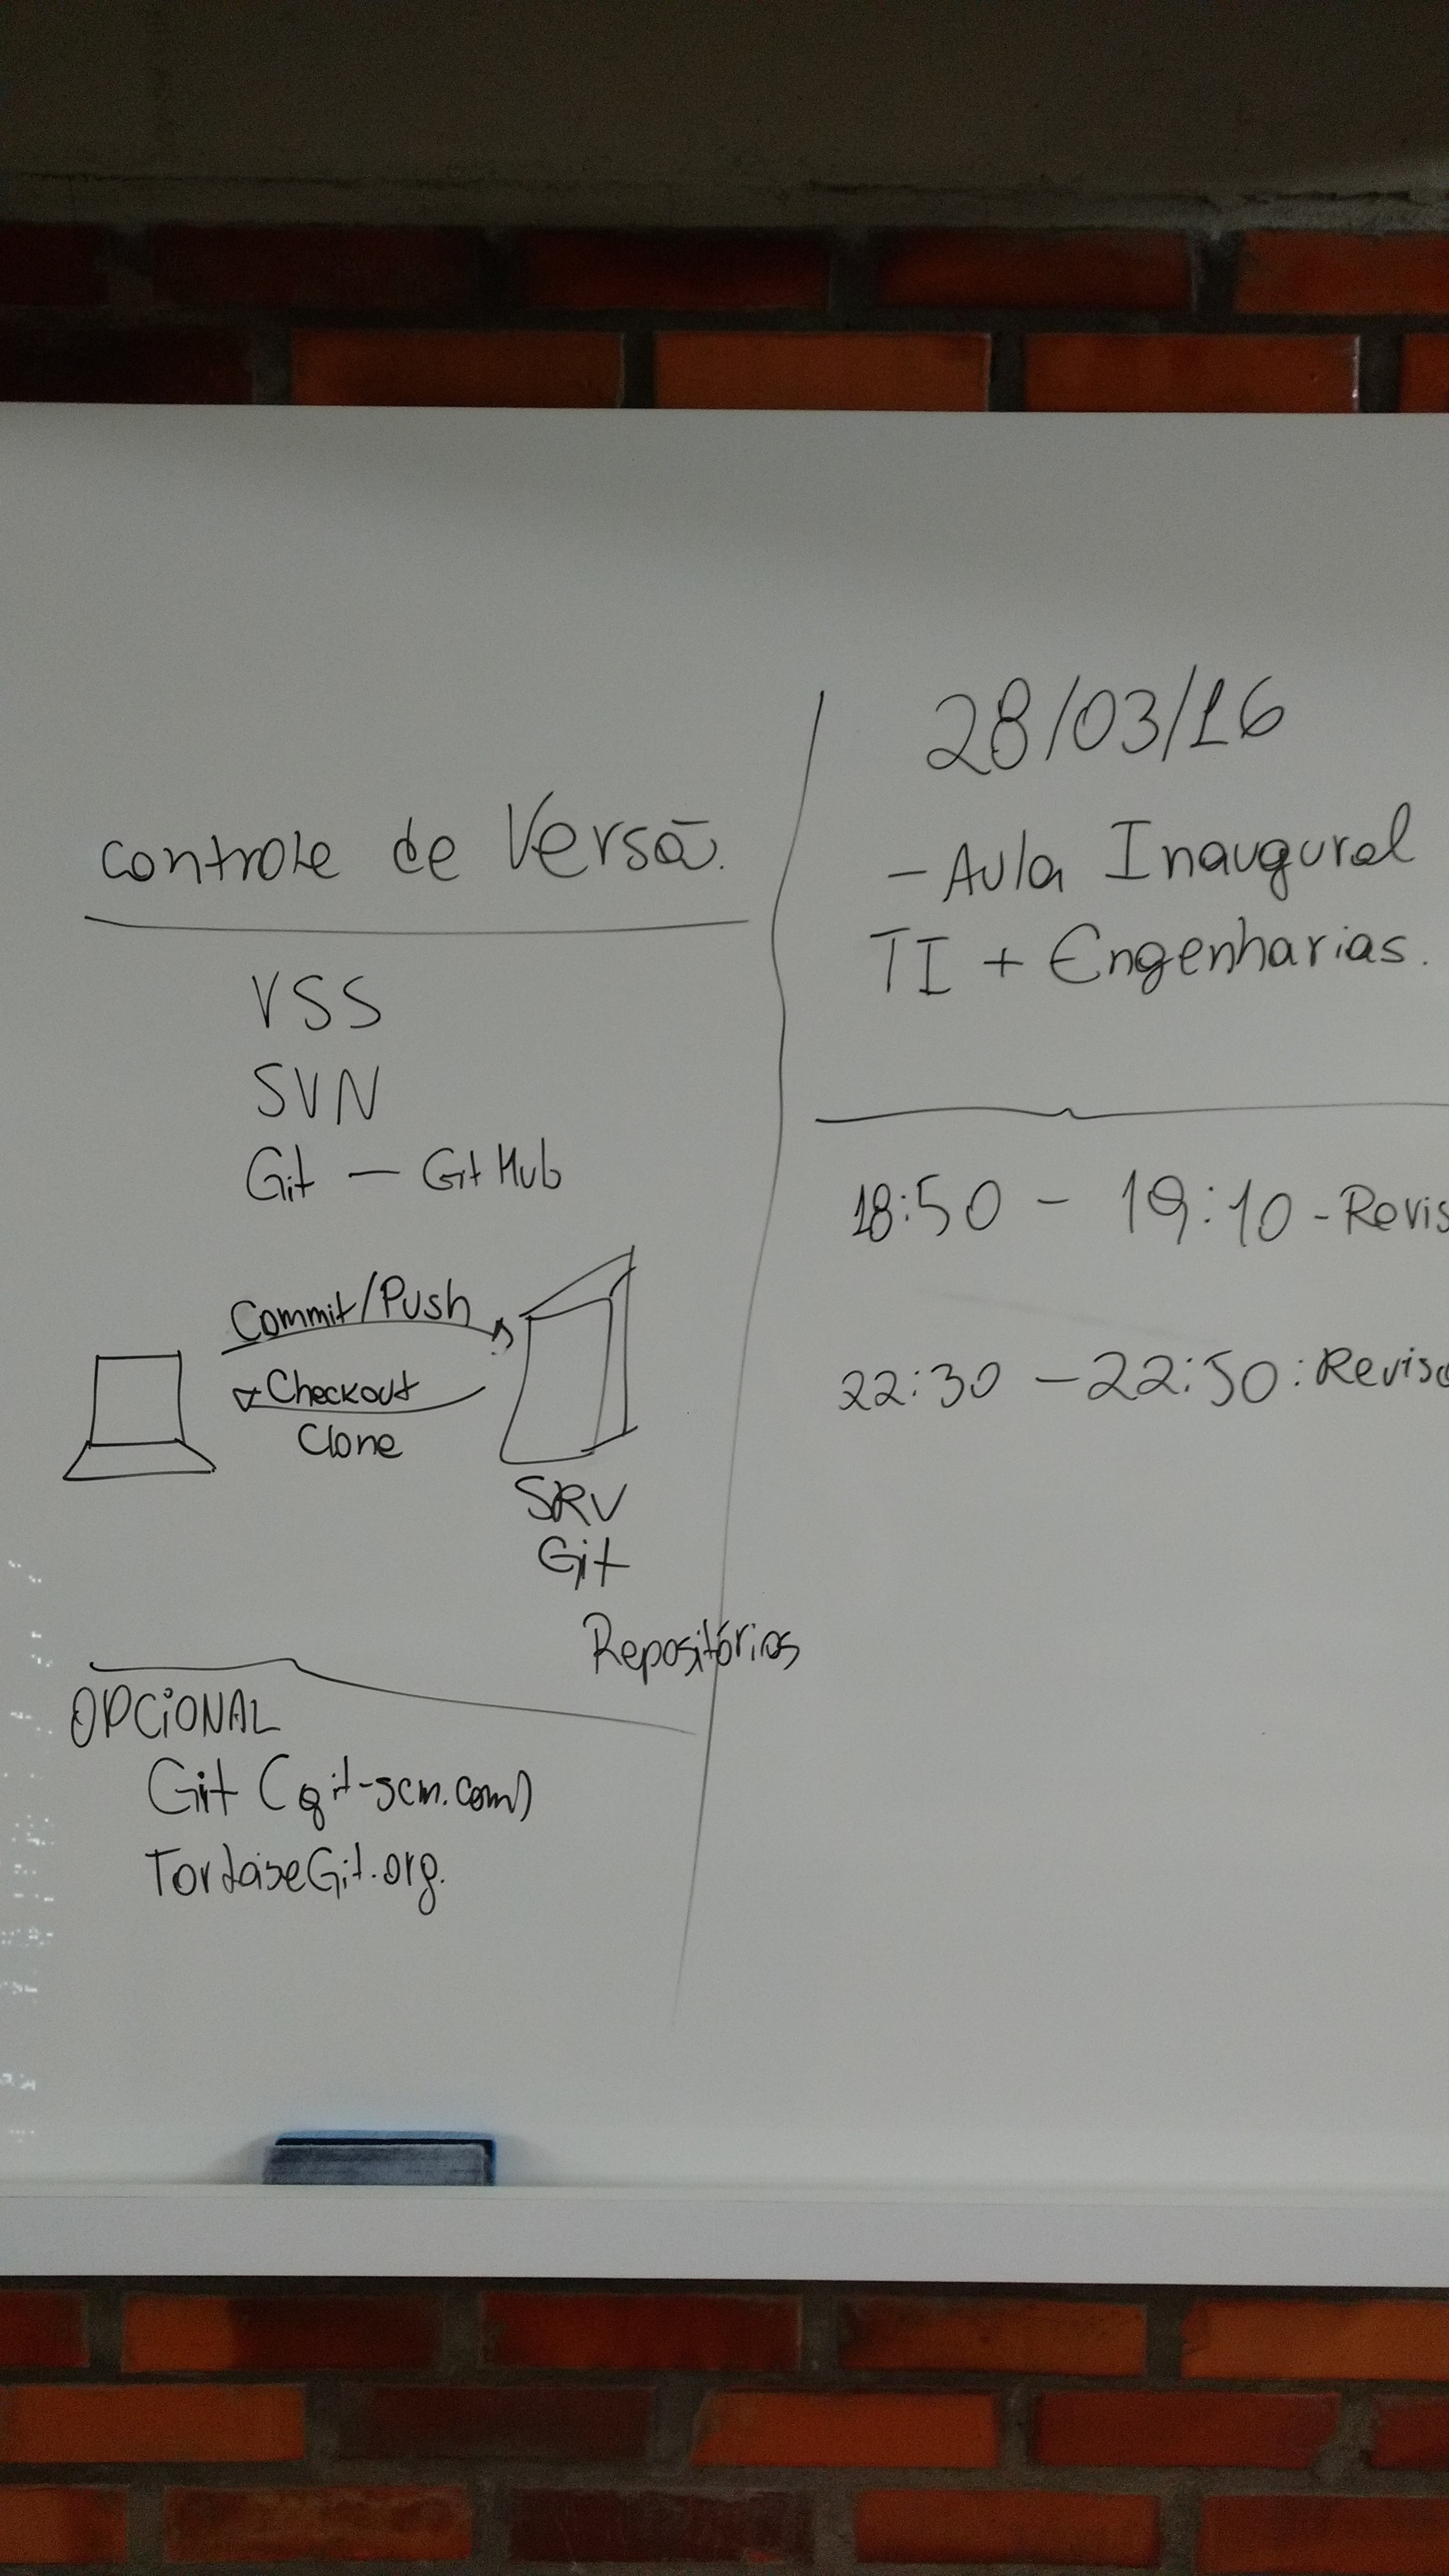 Controle de Versã.
VSS
SVN
Git — GitHub
Commit/Push
Checkout
Clone
SRV
Git
Repositórios
OPCIONAL
Git (git-scm.com)
TortoiseGit.org.
28/03/16
- Aula Inaugural
TI + Engenharias.
18:50 - 19:10 - Revis
22:30 - 22:50: Revisa